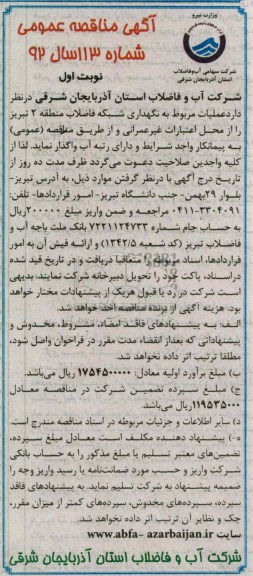 وزارت نیرو
شرکت سهامی آب و فاضلاب
استان آذربایجان شرقی
آگهی مناقصه عمومی
شماره ۱۱۳سال ۹۲
نوبت اول
شرکت آب و فاضلاب استان آذربایجان شرقی درنظر
داردعملیات مربوط به نگهداری شبکه فاضلاب منطقه ۲ تبریز
را از محل اعتبارات غیرعمرانی و از طریق مناقصه (عمومی)
به پیمانکار واجد شرایط و دارای رتبه آب واگذار نماید. لذا از
کلیه واجدین صلاحیت دعوت می‌گردد ظرف مدت ده روز از
تاریخ درج آگهی با درنظر گرفتن موارد ذیل، به آدرس تبریز-
بلوار ۲۹بهمن- جنب دانشگاه تبریز- امور قراردادها- تلفن:
۰۴۱۱-۳۳۰۴۰۹۱ مراجعه و ضمن واریز مبلغ ۲۰۰۰۰۰ریال
به حساب جام شماره ۷۲۲۱۱۲۴۷۳۳ بانک ملت باجه آب و
فاضلاب تبریز (کد شعبه ۱۳۴۲/۵) و ارائه فیش آن به امور
قراردادها، اسناد مربوطه را متعاقبا دریافت و در تاریخ قید شده
دراسناد، پاکت خود را تحویل دبیرخانه شرکت نمایند. بدیهی
است شرکت در رد یا قبول هریک از پیشنهادات مختار خواهد
بود. هزینه آگهی از برنده مناقصه اخذ خواهد شد.
الف: به پیشنهادهای فاقد امضاء، مشروط، مخدوش و
پیشنهاداتی که بعداز انقضاء مدت مقرر در فراخوان واصل شود،
مطلقا ترتیب اثر داده نخواهد شد.
ب) مبلغ برآورد اولیه معادل: ۱۷۵۴۵۰۰۰۰۰ ریال می‌باشد.
ج) مبلغ سپرده تضمین شرکت در مناقصه معادل
۱۱۹۵۳۵۰۰۰ریال می‌باشد.
د) سایر اطلاعات و جزئیات مربوطه در اسناد مناقصه مندرج است.
ه-) پیشنهاد دهنده مکلف است معادل مبلغ سپرده،
تضمین‌های معتبر تسلیم یا مبلغ مذکور را به حساب بانکی
شرکت واریز و حسب مورد ضمانت‌نامه یا رسید واریز وجه را
ضمیمه پیشنهاد به شرکت تسلیم نماید. به پیشنهادهای فاقد
سپرده، سپرده‌های مخدوش، سپرده‌های کمتر از میزان مقرر،
چک و نظایر آن ترتیب اثر داده نخواهد شد.
سایت www.abfa- azarbaijan.ir
شرکت آب و فاضلاب استان آذربایجان شرقی